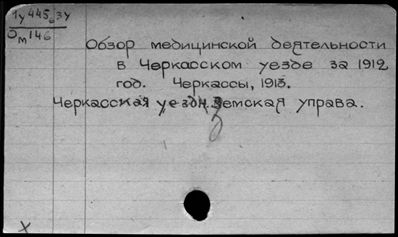 1у445,3у
Ом146
Обзор медицинской деятельности
в Черкасском уезде за 1912
год. Черкассы, 1913.
Черкасская уездн. земская управа.
х